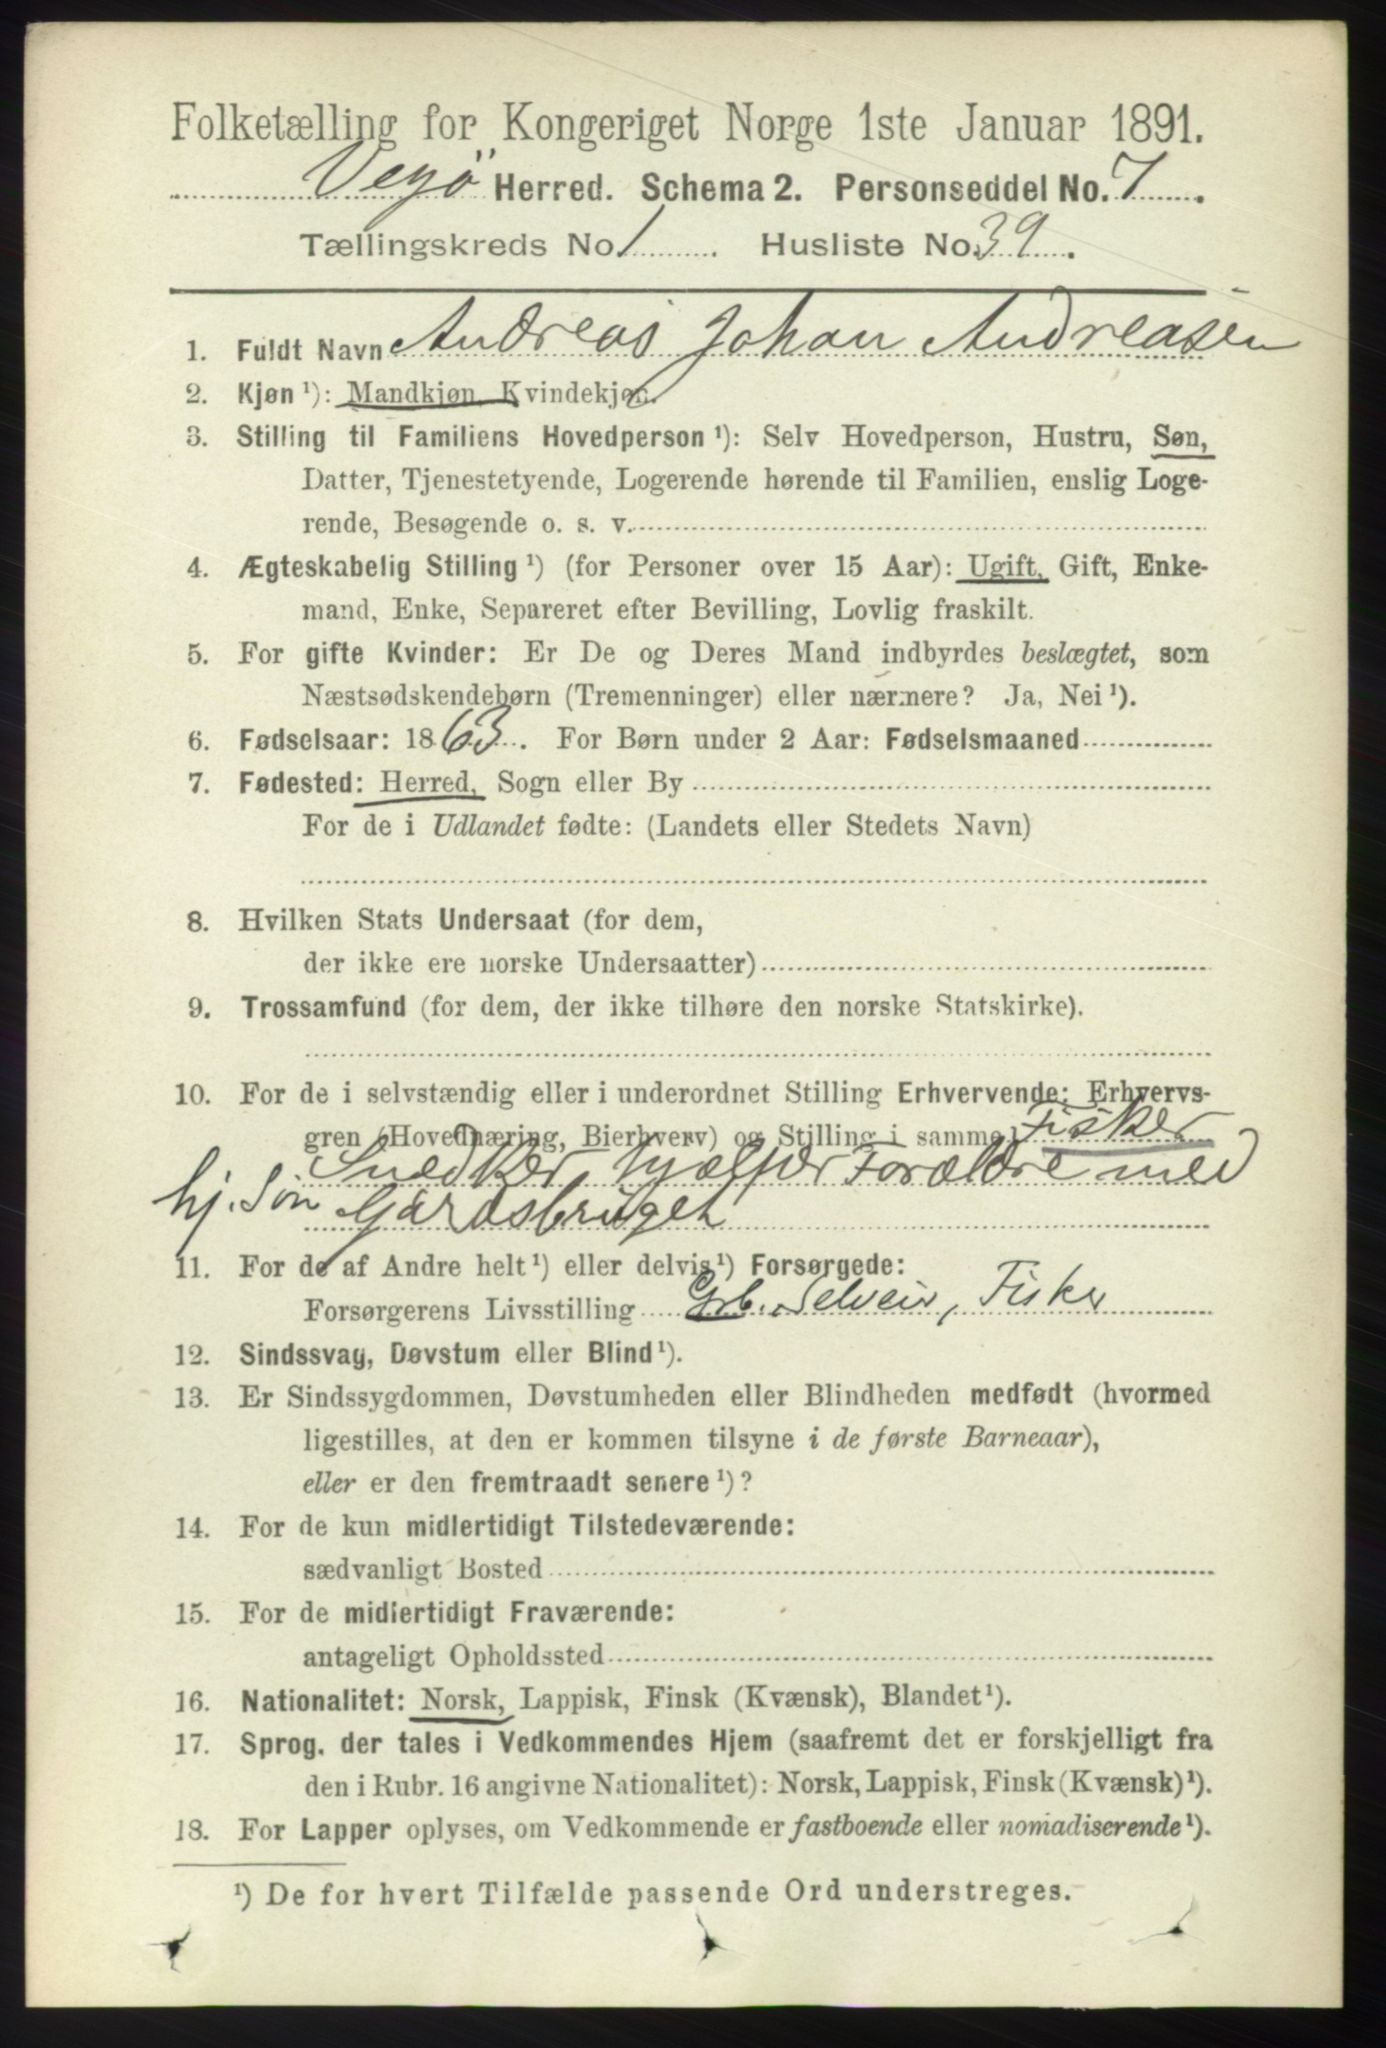 Folketælling for Kongeriget Norge 1ste Januar 1891.
Veyö Herred. Schema 2. Personseddel No. 7.
Tællingskreds No. 1. Husliste No. 39.
1. Fuldt Navn Andreas Johan Andreasen
2. Kjøn ¹): Mandkjøn, Kvindekjøn.
3. Stilling til Familiens Hovedperson ¹): Selv Hovedperson, Hustru, Søn,
Datter, Tjenestetyende, Logerende hørende til Familien, enslig Loge-
rende, Besøgende o. s. v.
4. Ægteskabelig Stilling ¹) (for Personer over 15 Aar): Ugift, Gift, Enke-
mand, Enke, Separeret efter Bevilling, Lovlig fraskilt.
5. For gifte Kvinder: Er De og Deres Mand indbyrdes beslægtet, som
Næstsødskendebørn (Tremenninger) eller nærmere? Ja, Nei ¹).
6. Fødselsaar: 1863. For Børn under 2 Aar: Fødselsmaaned
7. Fødested: Herred, Sogn eller By
For de i Udlandet fødte: (Landets eller Stedets Navn)
8. Hvilken Stats Undersaat (for dem,
der ikke ere norske Undersaatter)
9. Trossamfund (for dem, der ikke tilhøre den norske Statskirke).
10. For de i selvstændig eller i underordnet Stilling Erhvervende: Erhvervs-
gren (Hovednæring, Bierhverv) og Stilling i samme Fisker
Snedker, hjælper Forældre med
hj. Søn Gårdsbruget
11. For de af Andre helt ¹) eller delvis ¹) Forsørgede:
Forsørgerens Livsstilling Grb. Selveier, Fisker
12. Sindssvag, Døvstum eller Blind ¹).
13. Er Sindssygdommen, Døvstumheden eller Blindheden medfødt (hvormed
ligestilles, at den er kommen tilsyne i de første Barneaar),
eller er den fremtraadt senere ¹)?
14. For de kun midlertidigt Tilstedeværende:
sædvanligt Bosted
15. For de midlertidigt Fraværende:
antageligt Opholdssted
16. Nationalitet: Norsk, Lappisk, Finsk (Kvænsk), Blandet ¹).
17. Sprog, der tales i Vedkommendes Hjem (saafremt det er forskjelligt fra
den i Rubr. 16 angivne Nationalitet): Norsk, Lappisk, Finsk (Kvænsk) ¹).
18. For Lapper oplyses, om Vedkommende er fastboende eller nomadiserende ¹).
¹) De for hvert Tilfælde passende Ord understreges.